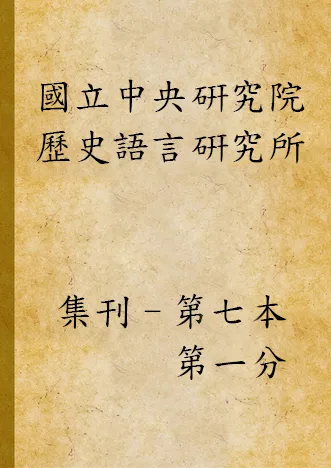 國立中央研究院
歷史語言研究所
集刊－第七本
第一分